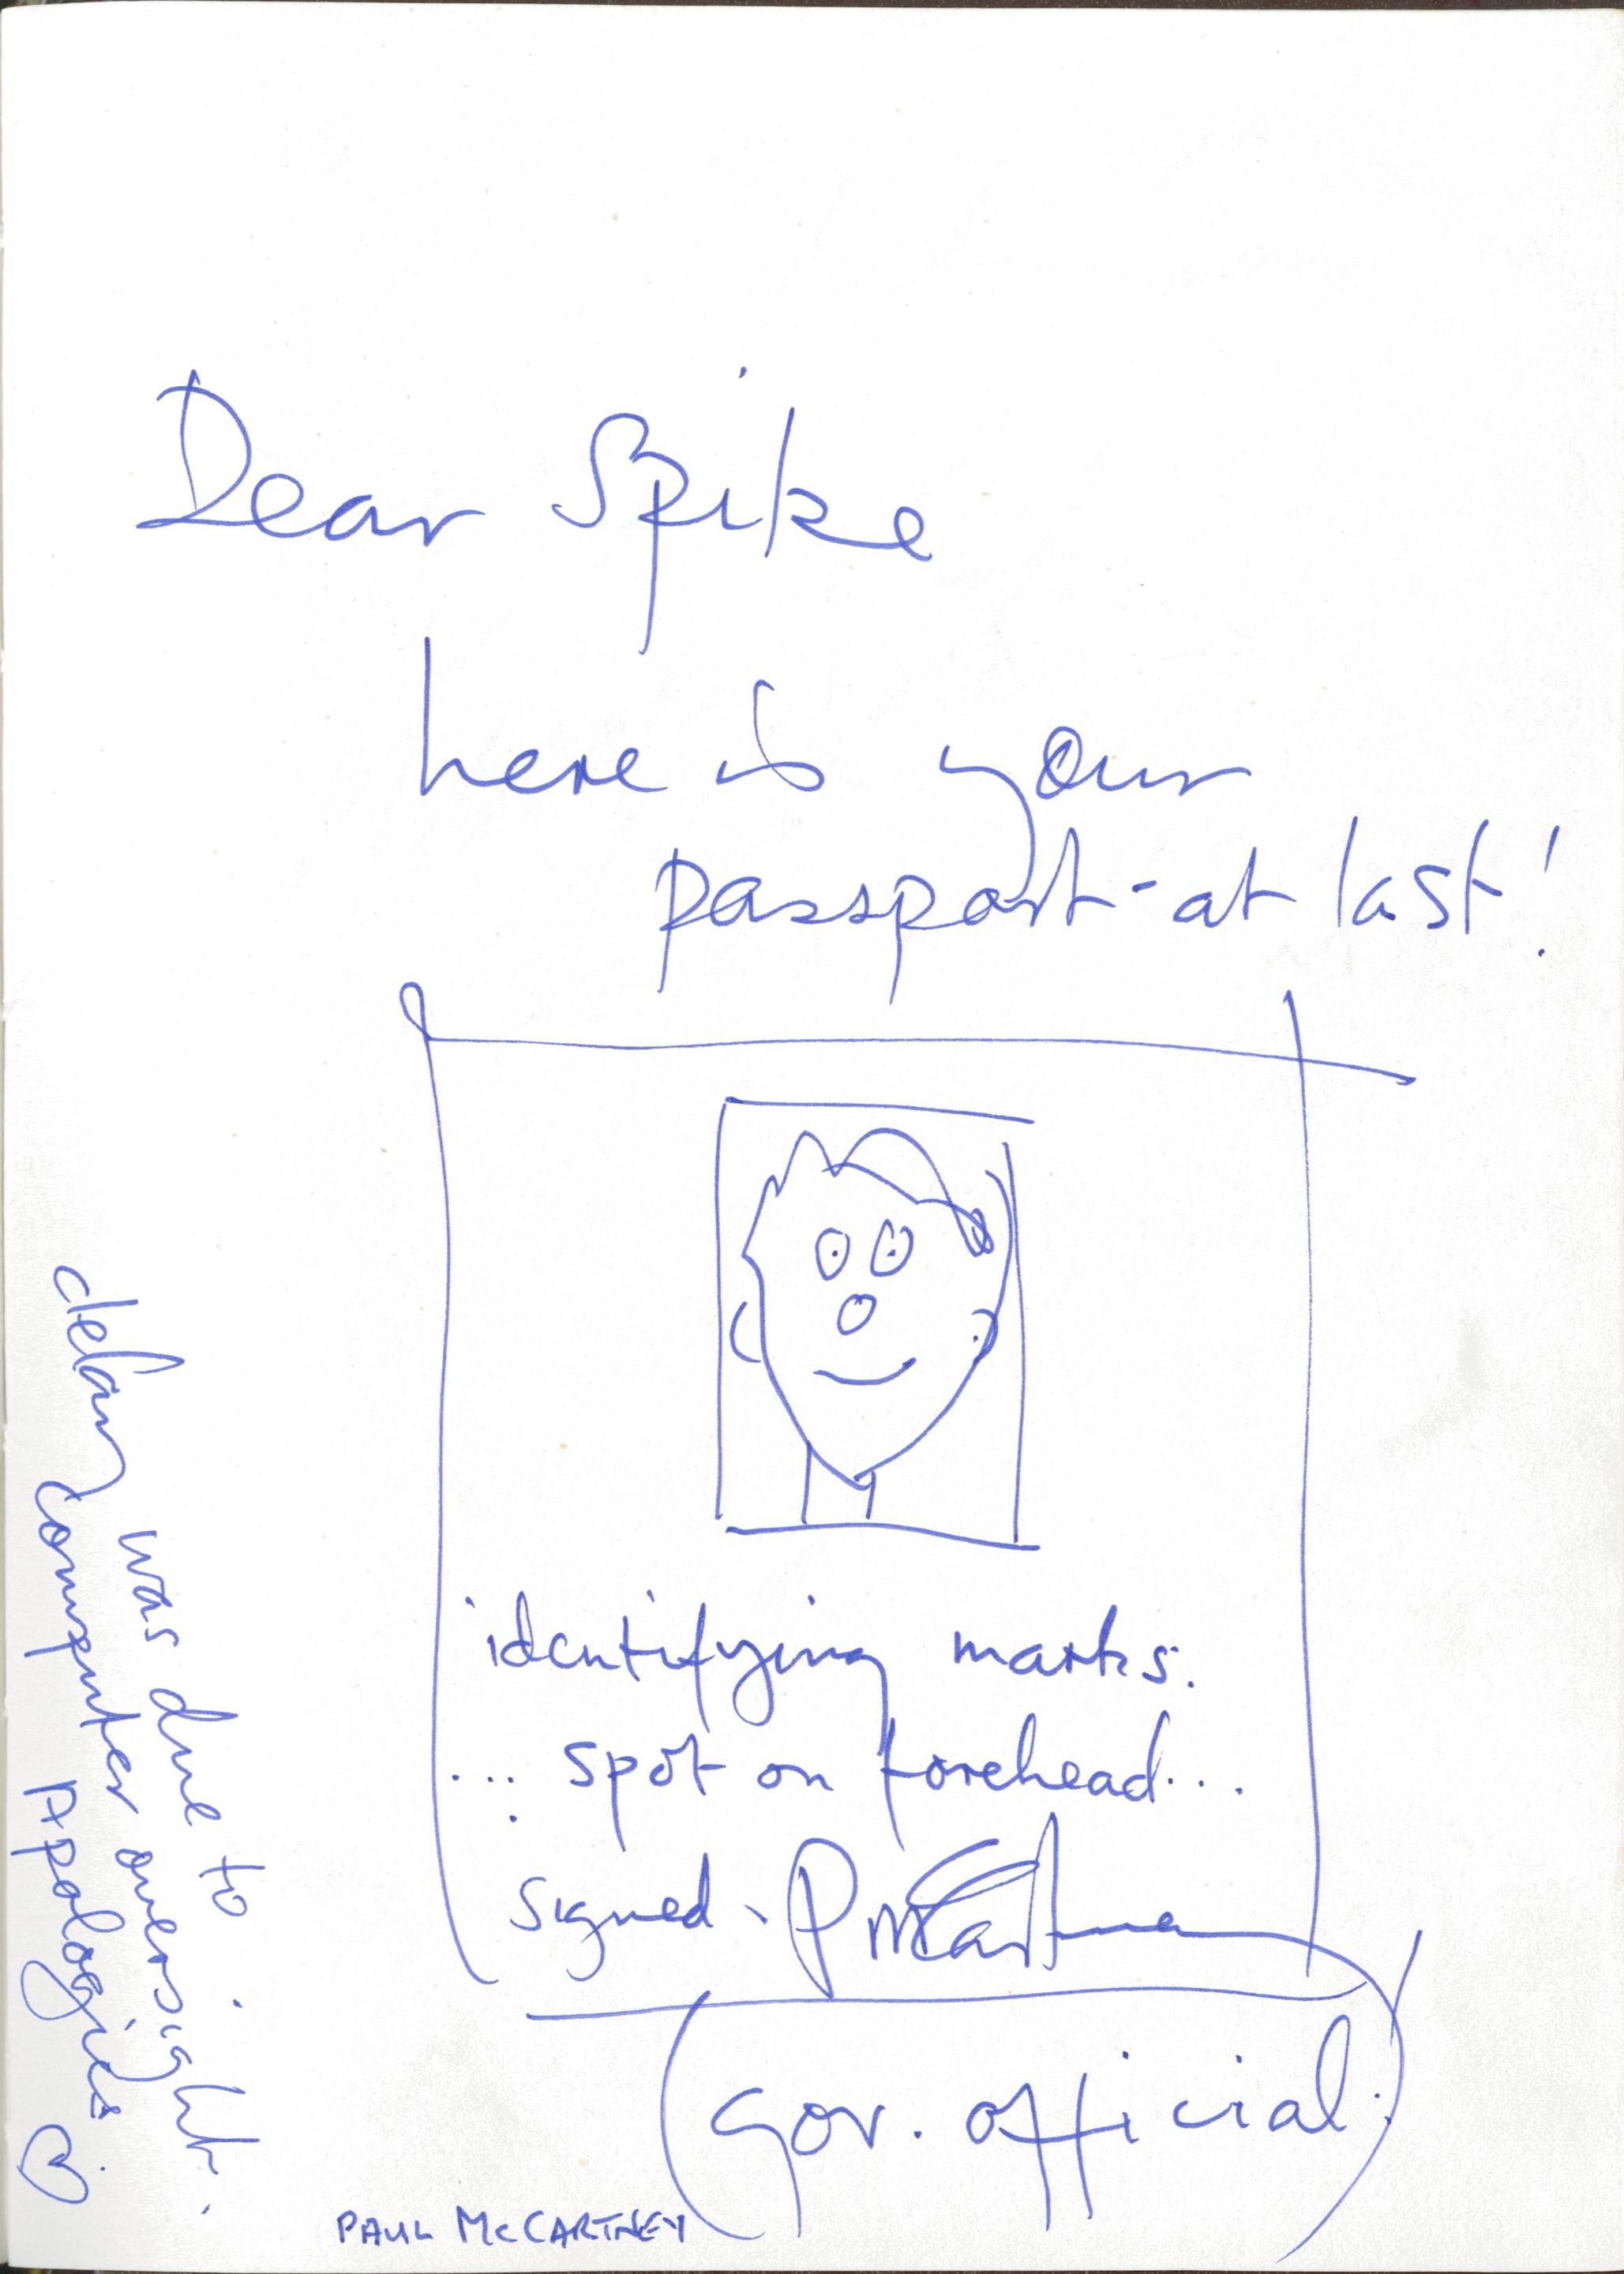 Dear Spike
here is your
passport - at last!
identifying marks:
... spot on forehead...
signed. P McCartney
(Gov. official.)
delay was due to
computer oversight.
Apologies ♡
PAUL McCARTNEY